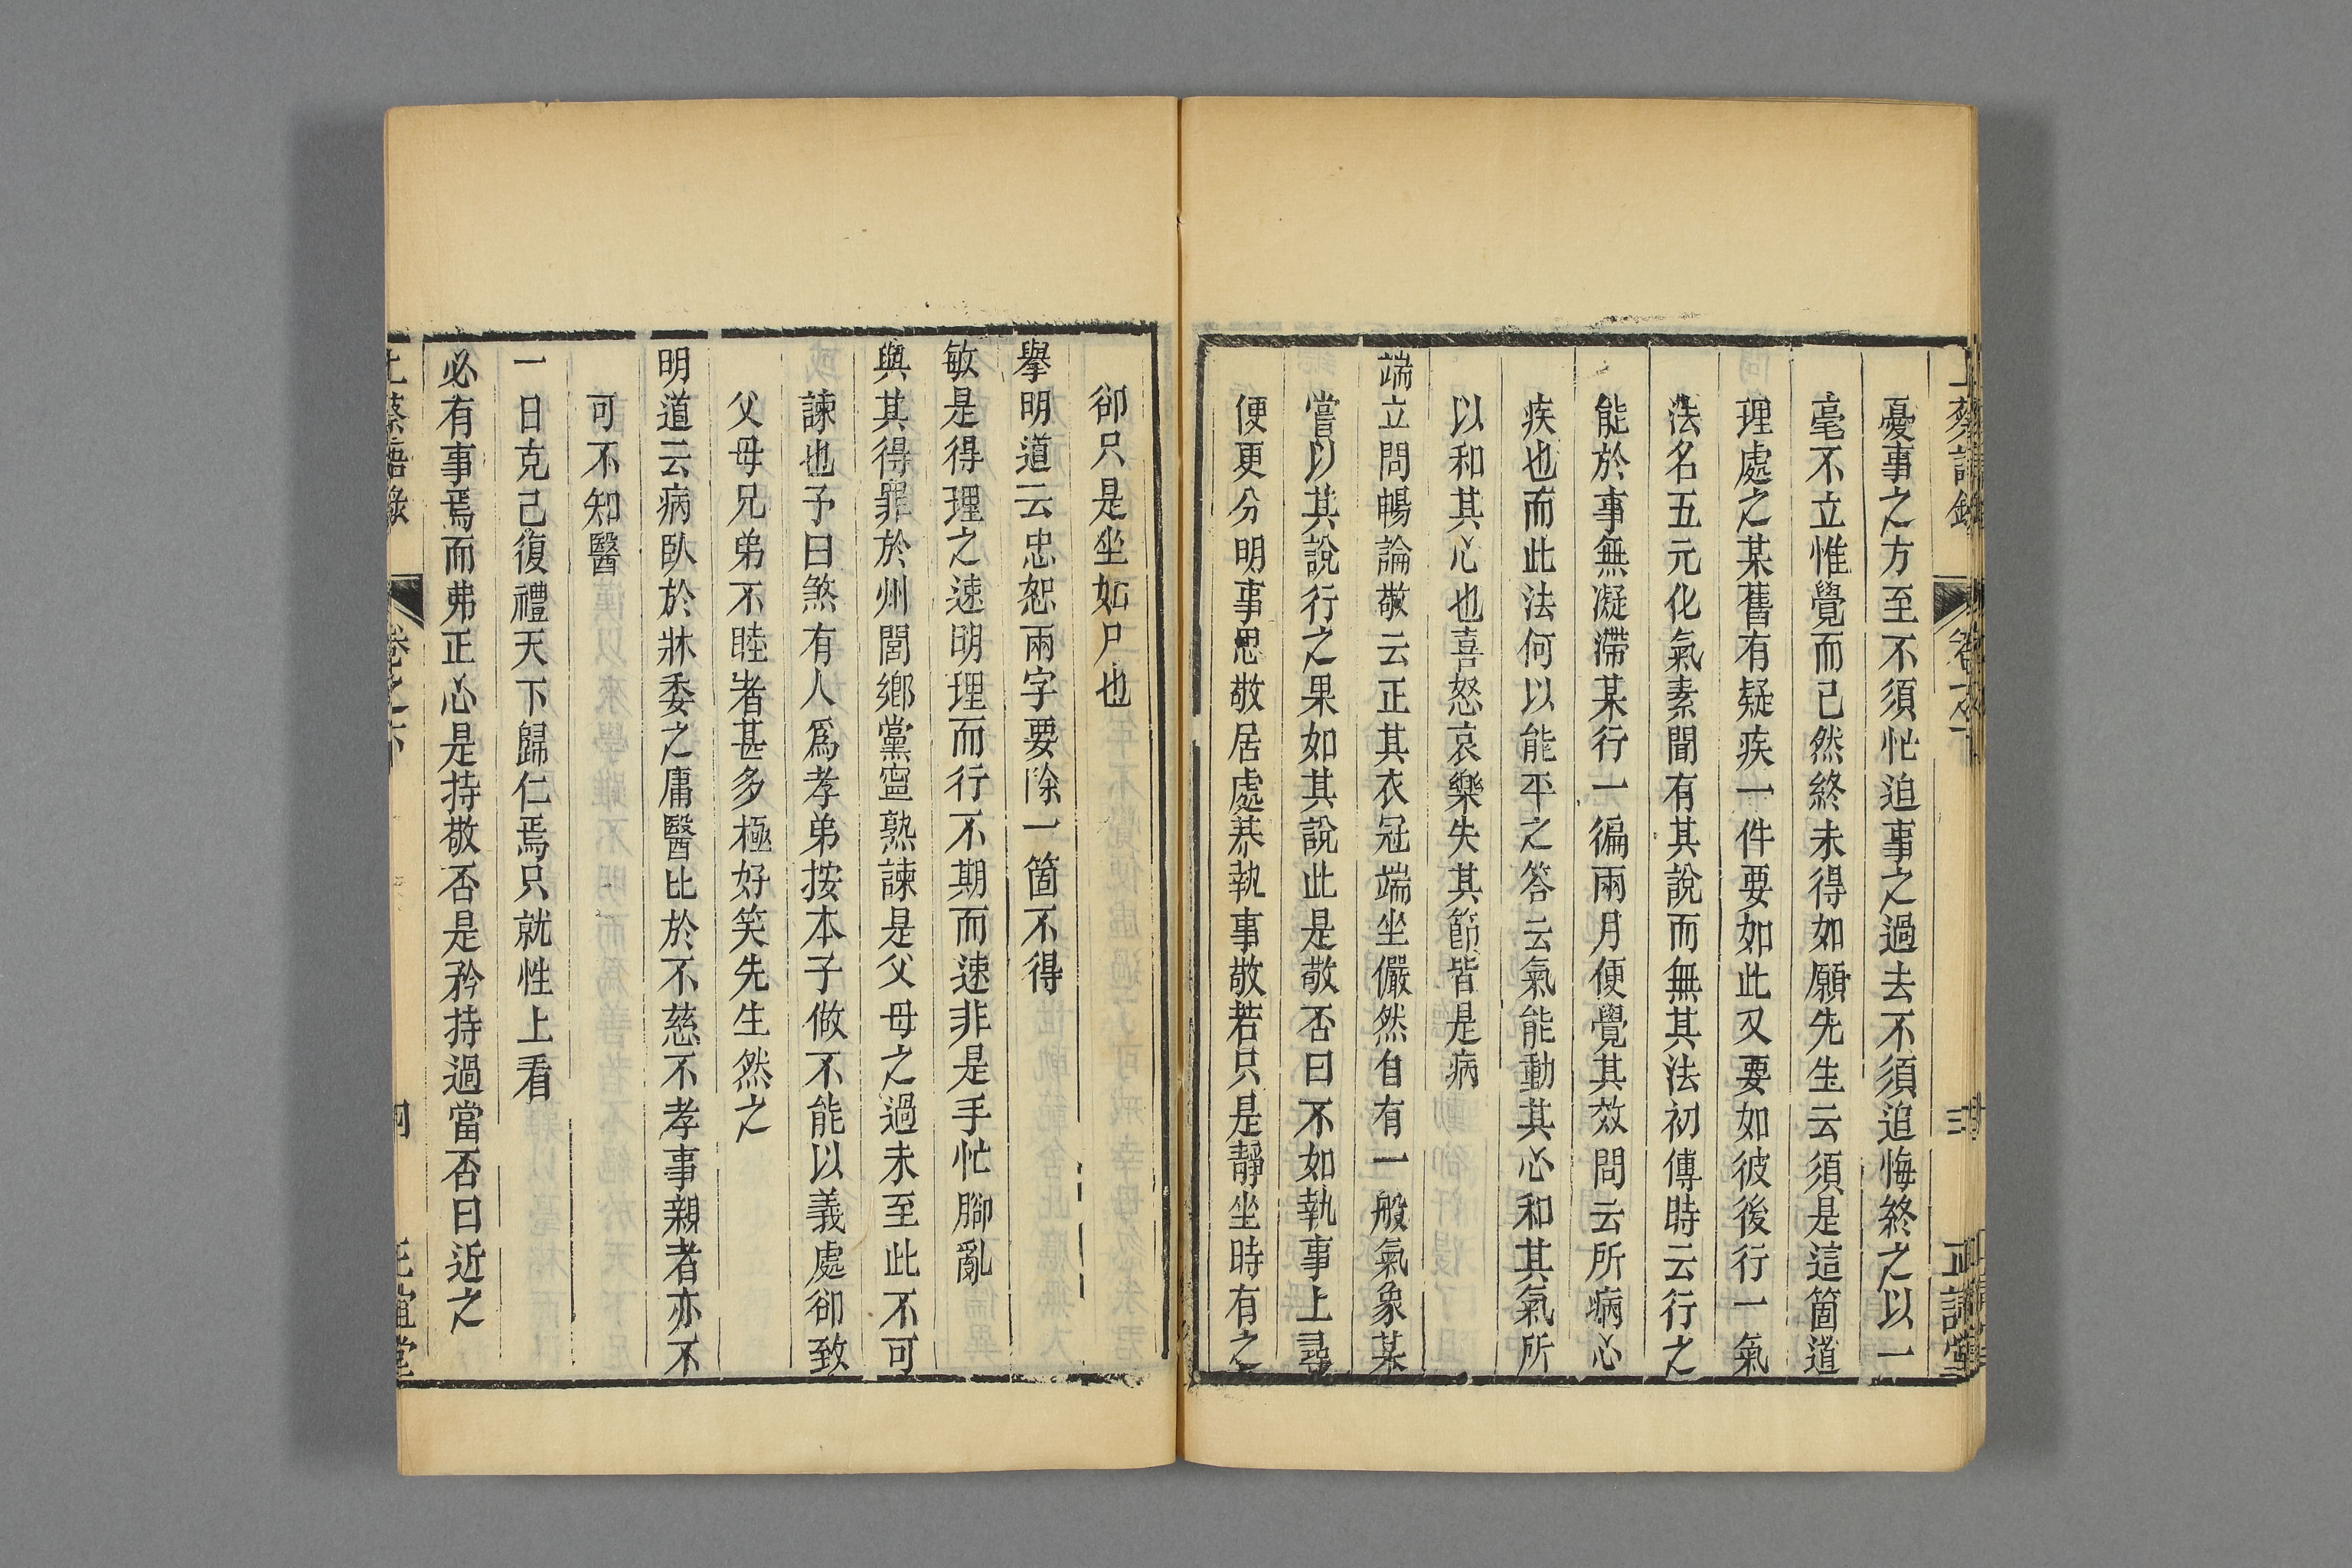 上蔡語錄 卷之下 三 正誼堂
憂事之方至不須忙迫事之過去不須追悔終之以一
毫不立惟覺而已然終未得如願先生云須是這箇道
理處之某舊有疑疾一件要如此又要如彼後行一氣
法名五元化氣素聞有其說而無其法初傳時云行之
能於事無凝滯某行一徧兩月便覺其效問云所病心
疾也而此法何以能平之答云氣能動其心和其氣所
以和其心也喜怒哀樂失其節皆是病
端立問暢論敬云正其衣冠端坐儼然自有一般氣象某
嘗以其說行之果如其說此是敬否曰不如執事上尋
便更分明事思敬居處恭執事敬若只是靜坐時有之
卻只是坐如尸也
舉明道云忠恕兩字要除一箇不得
敏是得理之速明理而行不期而速非是手忙腳亂
與其得罪於州閭鄉黨寧熟諫是父母之過未至此不可
諫也予曰煞有人爲孝弟按本子做不能以義處卻致
父母兄弟不睦者甚多極好笑先生然之
明道云病臥於牀委之庸醫比於不慈不孝事親者亦不
可不知醫
一日克己復禮天下歸仁焉只就性上看
必有事焉而弗正心是持敬否是矜持過當否曰近之
上蔡語錄 卷之下 四 正誼堂